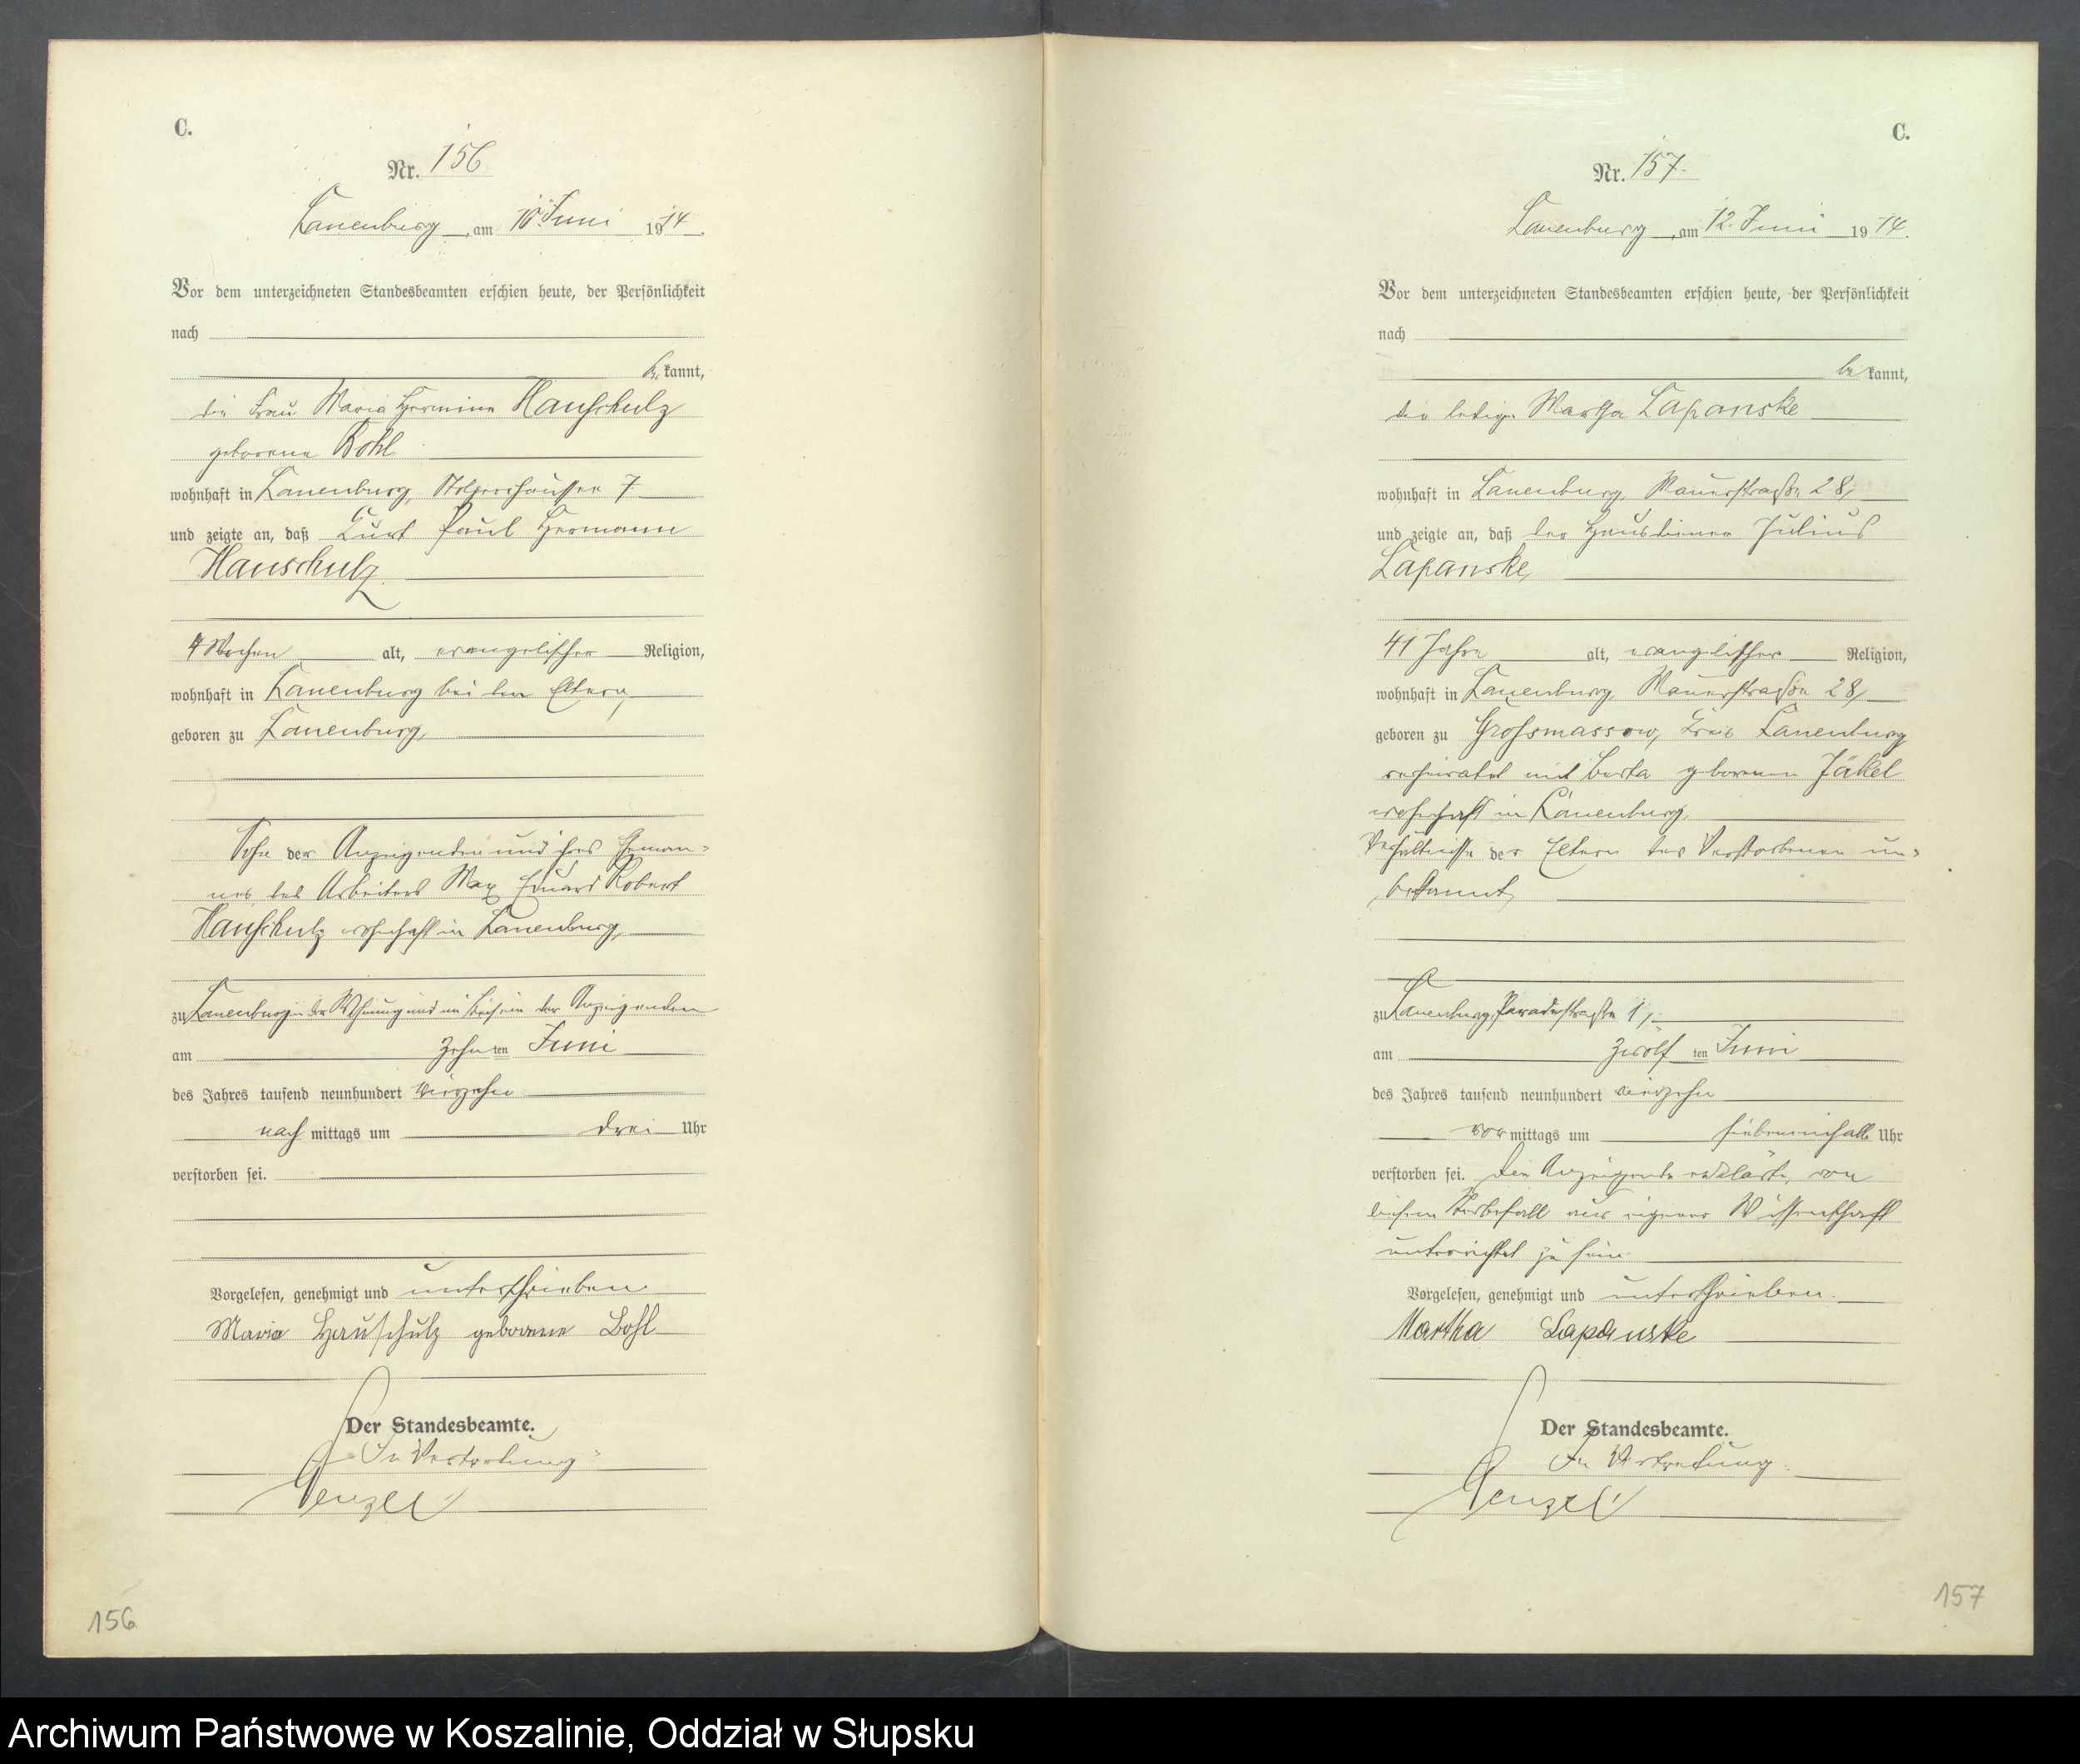 C.
Nr. 156
Lauenburg, am 10. Juni 1914.
Vor dem unterzeichneten Standesbeamten erschien heute, der Persönlichkeit
nach
be kannt,
die Frau Maria Hermine Hauschulz
geborene Bohl
wohnhaft in Lauenburg, 7
und zeigte an, daß Curt Paul Hermann
Hauschulz
4 Wochen alt, evangelischer Religion,
wohnhaft in Lauenburg bei den Eltern,
geboren zu Lauenburg,
Sohn der Anzeigenden und ihres Eheman=
nes, des Arbeiters Max Eduard Robert
Hauschulz wohnhaft in Lauenburg,
zu Lauenburg in der Wohnung und im Beisein der Anzeigenden
am zehn ten Juni
des Jahres tausend neunhundert vierzehn
nach mittags um drei Uhr
verstorben sei.
Vorgelesen, genehmigt und unterschrieben
Maria Hauschulz geborene Bohl
Der Standesbeamte.
In Vertretung
Wenzel
156
C.
Nr. 157.
Lauenburg, am 12. Juni 1914.
Vor dem unterzeichneten Standesbeamten erschien heute, der Persönlichkeit
nach
be kannt,
die ledige Martha Lapanske
wohnhaft in Lauenburg, Mauerstraße 28,
und zeigte an, daß der Hausdiener Julius
Lapanske,
41 Jahre alt, evangelischer Religion,
wohnhaft in Lauenburg, Mauerstraße 28,
geboren zu Grossmassow, Kreis Lauenburg
verheiratet mit Berta geborenen Jäkel
wohnhaft in Lauenburg,
Verhältnisse der Eltern des Verstorbenen un=
bekannt,
zu Lauenburg, Paradestraße 1,
am zwölf ten Juni
des Jahres tausend neunhundert vierzehn
vor mittags um siebeneinhalb Uhr
verstorben sei. Die Anzeigende erklärte, von
diesem Sterbefall aus eigener Wissenschaft
unterrichtet zu sein.
Vorgelesen, genehmigt und unterschrieben.
Martha Lapanske
Der Standesbeamte.
In Vertretung.
Wenzel
157
Archiwum Państwowe w Koszalinie, Oddział w Słupsku